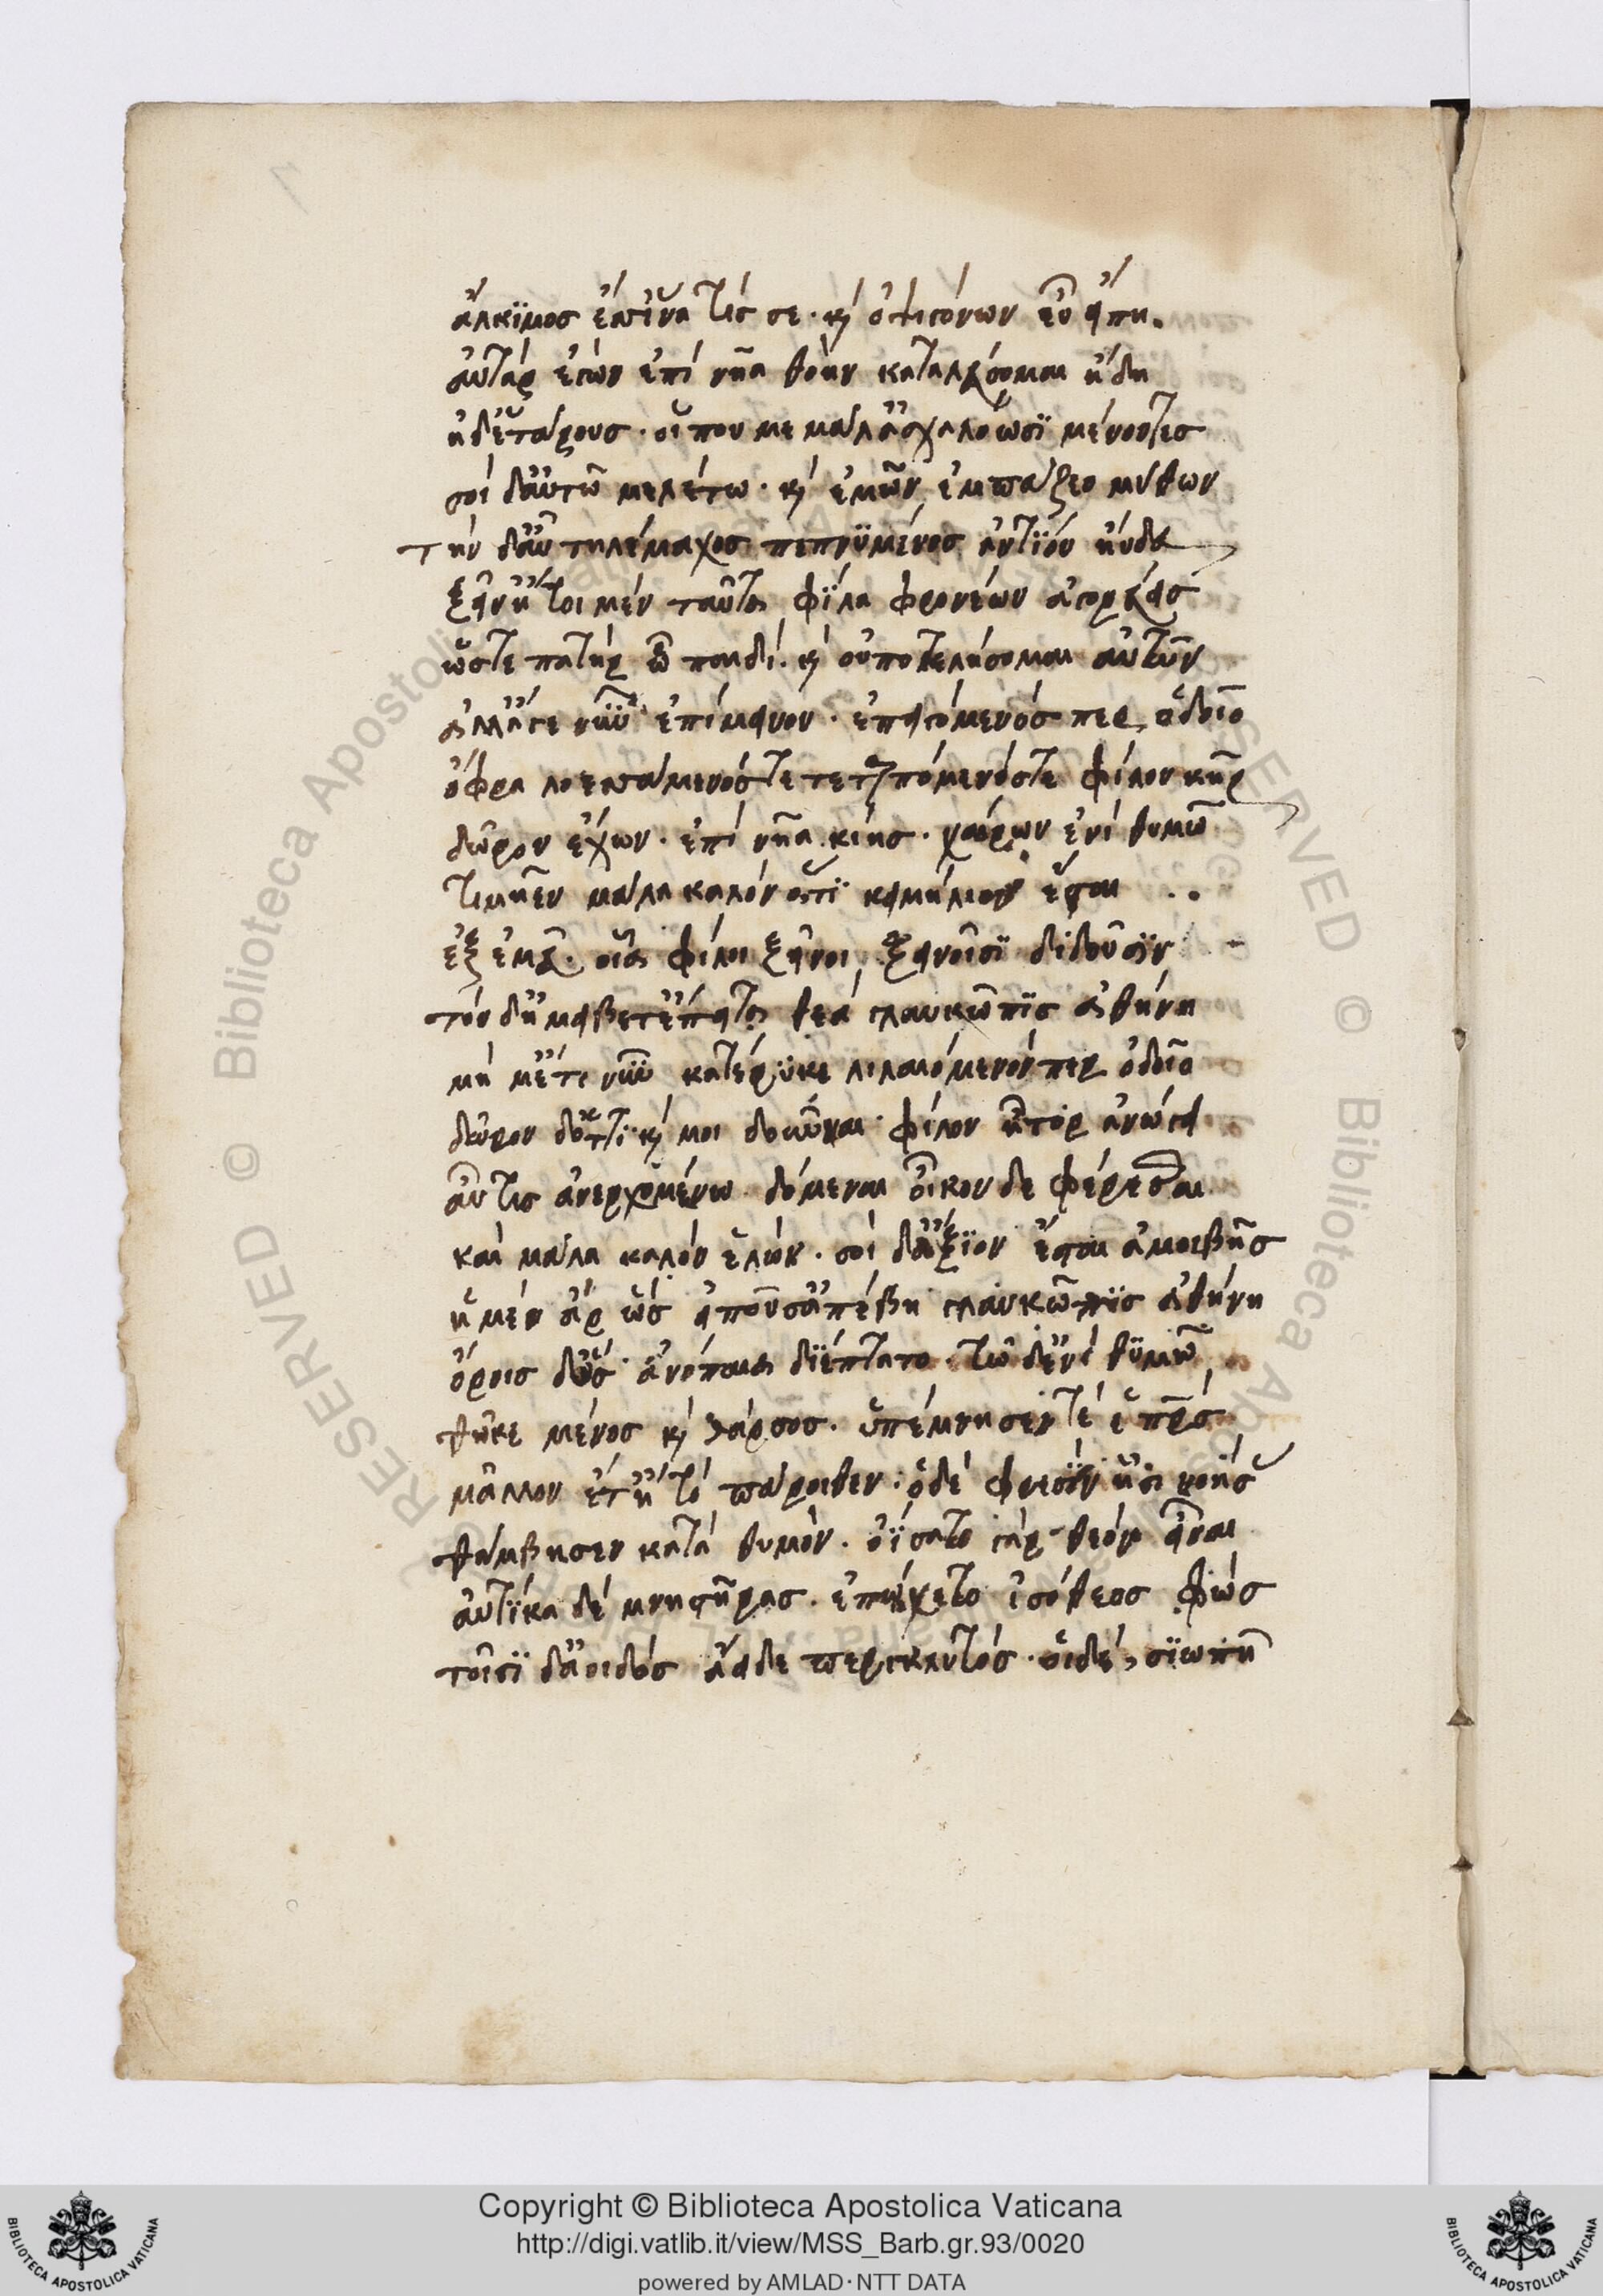 ἄλκϊμος ἔσσ' ἵνα τίς σε· κὶ ὀψιγόνων εὖ εἴπη.
αὐτὰρ ἐγὼν ἐπὶ νῆα θοὴν κατελεύσομαι ἤδη
ἠδ' ἑτάρους· οἵ που με μάλ' ἀσχαλόωσϊ μένοντες
σοὶ δ' αὐτῶ μελέτω· κὶ ἐμῶν ἐμπάζεο μύθων
τὴν δ' αὖ τηλέμαχος πεπνϋμένος ἀντϊόν ηὔδα
ξεῖν' ἤτοι μὲν ταῦτα φΐλα φρονέων ἀγορεύεις
ὥστε πατὴρ ὧ παιδί· κὶ οὔποτε λήσομαι αὐτῶν
ἀλλ' ἄγε νῦν ἐπίμεινον· ἐπειγόμενός περ ὁδοῖο
ὄφρα λοεσσάμενός τε τεταρπόμενός τε φίλον κῆρ
δῶρον ἔχων· ἐπὶ νῆα κίης· χαίρων ἐνὶ θυμῶ
τιμῆεν μάλα καλόν ὅ τοι κειμήλιον ἔσται ..
ἐξ ἐμεῦ· οἷα φίλοι ξεῖνοι ξείνοισϊ διδοῦσϊν
τὸν δ' ἠμείβετ' ἔπειτα θεὰ γλαυκῶπϊς ἀθήνη
μή μ' ἔτι νῦν κατέρϋκε λιλαιόμενόν περ ὁδοῖο
δῶρον δ' ὅττι κέ μοι δοῦναι φίλον ἦτορ ἀνώγει
αὖτις ἀνερχομένω δόμεναι οἶκον δε φέρεσθαι
καὶ μάλα καλὸν ἑλών· σοὶ δ' ἄξϊον ἔσται ἀμοιβῆς
ἡ μὲν ἂρ ὣς εἰποῦσ' ἀπέβη γλαυκῶπϊς ἀθήνη
ὄρνις δ' ὣς ἀνόπαια διέπτατο· τῶ δ' ἐνὶ θϋμῶ
θῆκε μένος κὶ θάρσος· ὑπέμνησέν τέ ἑ πρς
μᾶλλον ἔτ' ἢ τὸ πάροιθεν· ὁ δὲ φρεσὶν ἧσι νοήσας
θάμβησεν κατὰ θυμόν· ὀΐσατο γὰρ θεὸν εἶναι
αὐτϊκα δὲ μνηστῆρας· ἐπῴχετο ἰσόθεος φώς
τοῖσϊ δ' ἀοιδὸς ἄειδε περικλυτός· οἱ δὲ σϊωπῆ
Copyright © Biblioteca Apostolica Vaticana
http://digi.vatlib.it/view/MSS_Barb.gr.93/0020
powered by AMLAD·NTT DATA